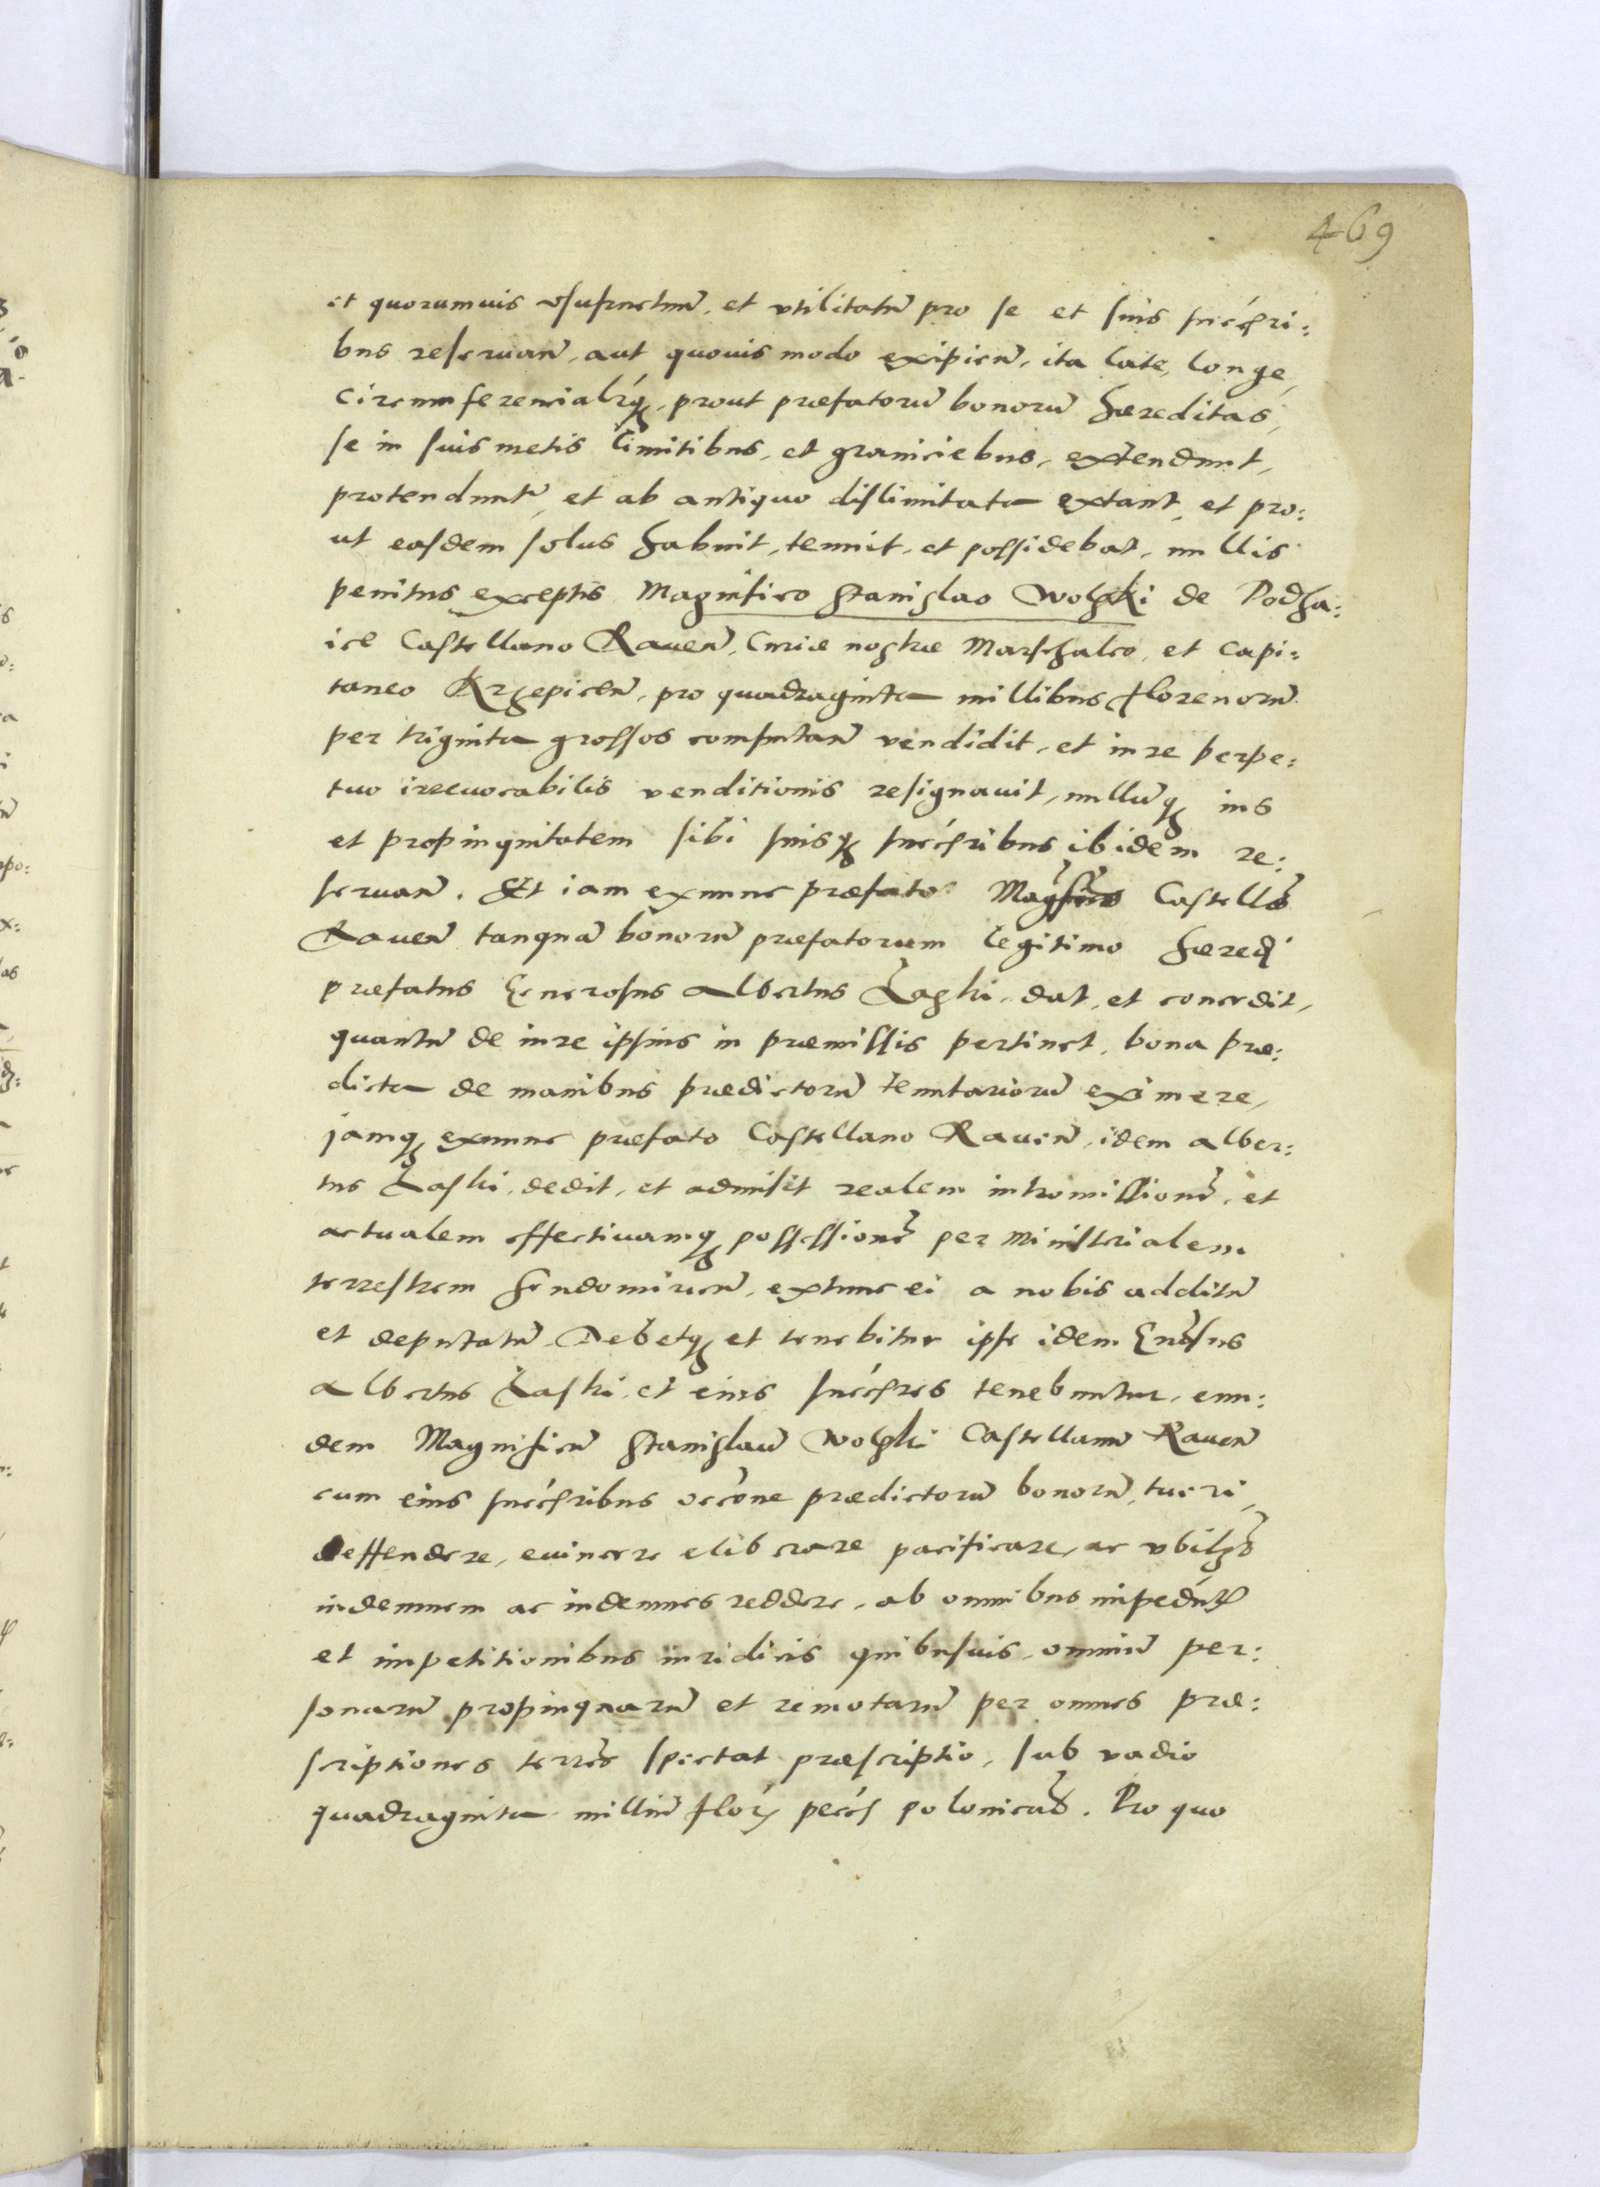 469
et quorumuis vsufructuũ, et vtilitatũ pro se et suis succẽsori:
bus reseruañ, aut quouis modo exipieñ, ita late, longe,
circumferencialrq́, prout præfatorũ bonorũ hæreditas,
se in suis metis limitibus, et graniciebus, extendunt,
protenduntr, et ab antiquo dislimitata extant, et pro:
ut easdem solus habuit, tenuit, et possidebat, nullis
penitus exceptis Magnifico Stanislao Wolski de Podha:
ice Castellano Raueñ, Curiæ nostræ Marschalco, et capi:
taneo Krzepiceñ, pro quadraginta millibus florenorũ
per triginta grossos computañ vendidit, et iure perpe:
tuo irreuocabilis venditionis resignauit, nullũq ius
et propinquitatem sibi suisq succẽsribus ibidem re:
seruañ. Et iam exnunc præfato Castello
Raueñ tanquã bonorũ præfatorum legitimo hæredi
præfatus Generosus Albertus Laski, dat, et concedit,
quantũ de iure ipsius in præmissis pertinet, bona præ:
dicta de manibus prædictorũ tenutariorũ eximere,
jamq exnunc præfato Castellano Raueñ, idem Alber:
tus Laski, dedit, et admisit realem intromissionẽ, et
actualem effectiuamq possessionẽ per ministerialem
terrestrem Sendomirieñ, extunc ei a nobis additũ
et deputatũ Debetq et tenebitur ipse idem Gnõsus
Albertus Laski, et eius succẽsres tenebuntur, eun:
dem Magnificũ Stanislaũ Wolski Castellanũ Raueñ
cum eius succẽsribus occõne prædictorũ bonorũ, tueri,
deffendere, euincere eliberare pacificare, ac vbilt
indemnem ac indemnes reddere, ab omnibus impedim̃
et impetitionibus iuridicis quibusuis, omniũ per:
sonarũ propinquarũ et remotarũ per omnes præ:
scriptiones terres spectat præscriptio, sub vadio
quadraginta milliũ flor pecc̃ polonicał. Pro quo